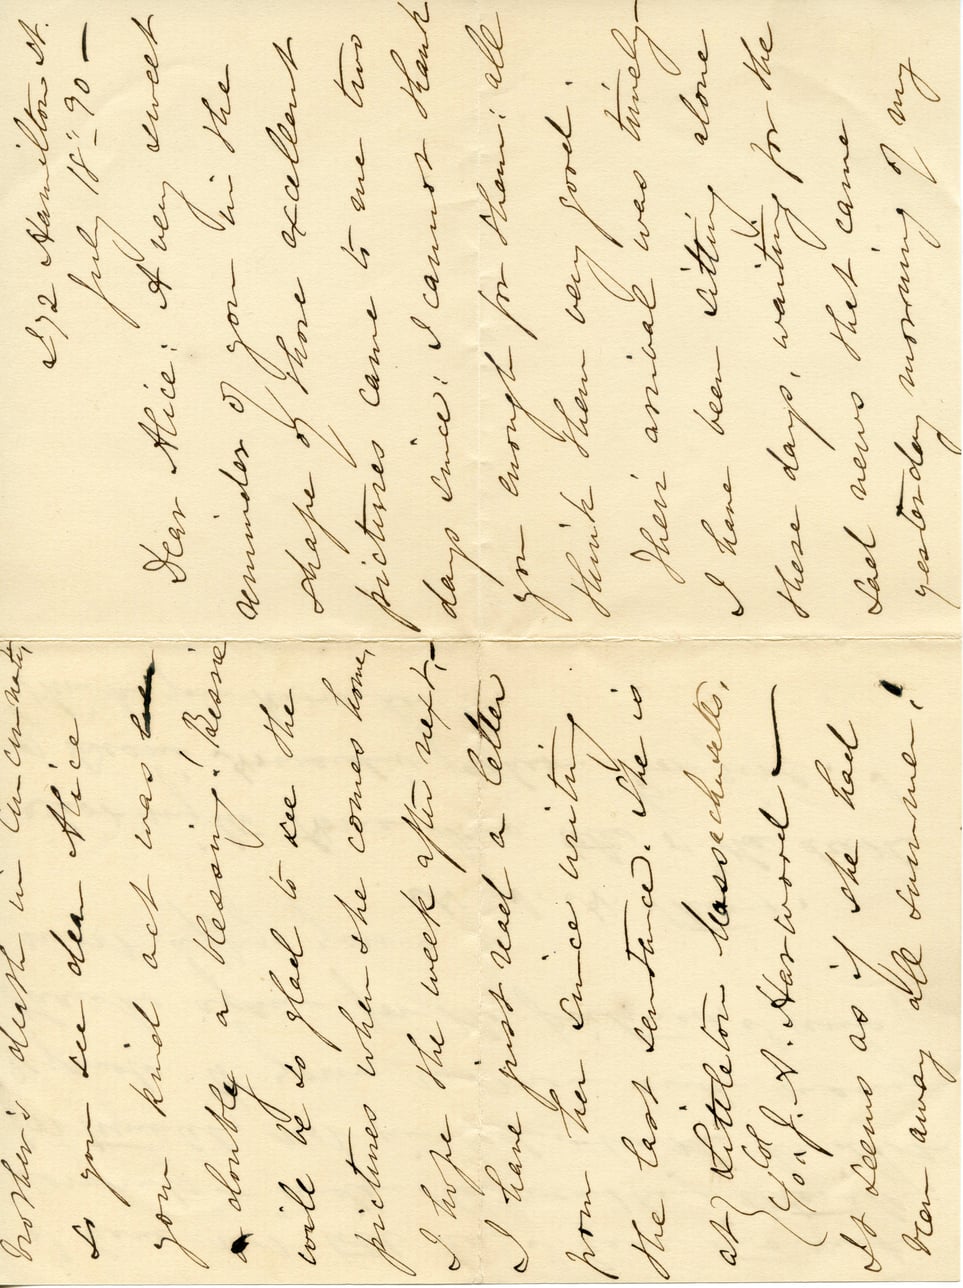 272 Hamilton St.
July 18" - 90 —
Dear Alice: A very sweet
reminder of you in the
shape of those excellent
pictures came to me two
days since: I cannot thank
you enough for them: all
think them very good.
Their arrival was timely—
I have been sitting alone
these days, waiting for the
sad news that came
yesterday morning of my
Mother's death in Cincinnati,
so you see dear Alice
your kind act was
a doubly a blessing! Bessie
will be so glad to see the
pictures when she comes home,
I hope the week after next,—
I have just read a letter
from her since writing
the last sentence. She is
at Littleton Massachusetts,
(Col J. A. Harwood —
It seems as if she had
been away all summer!